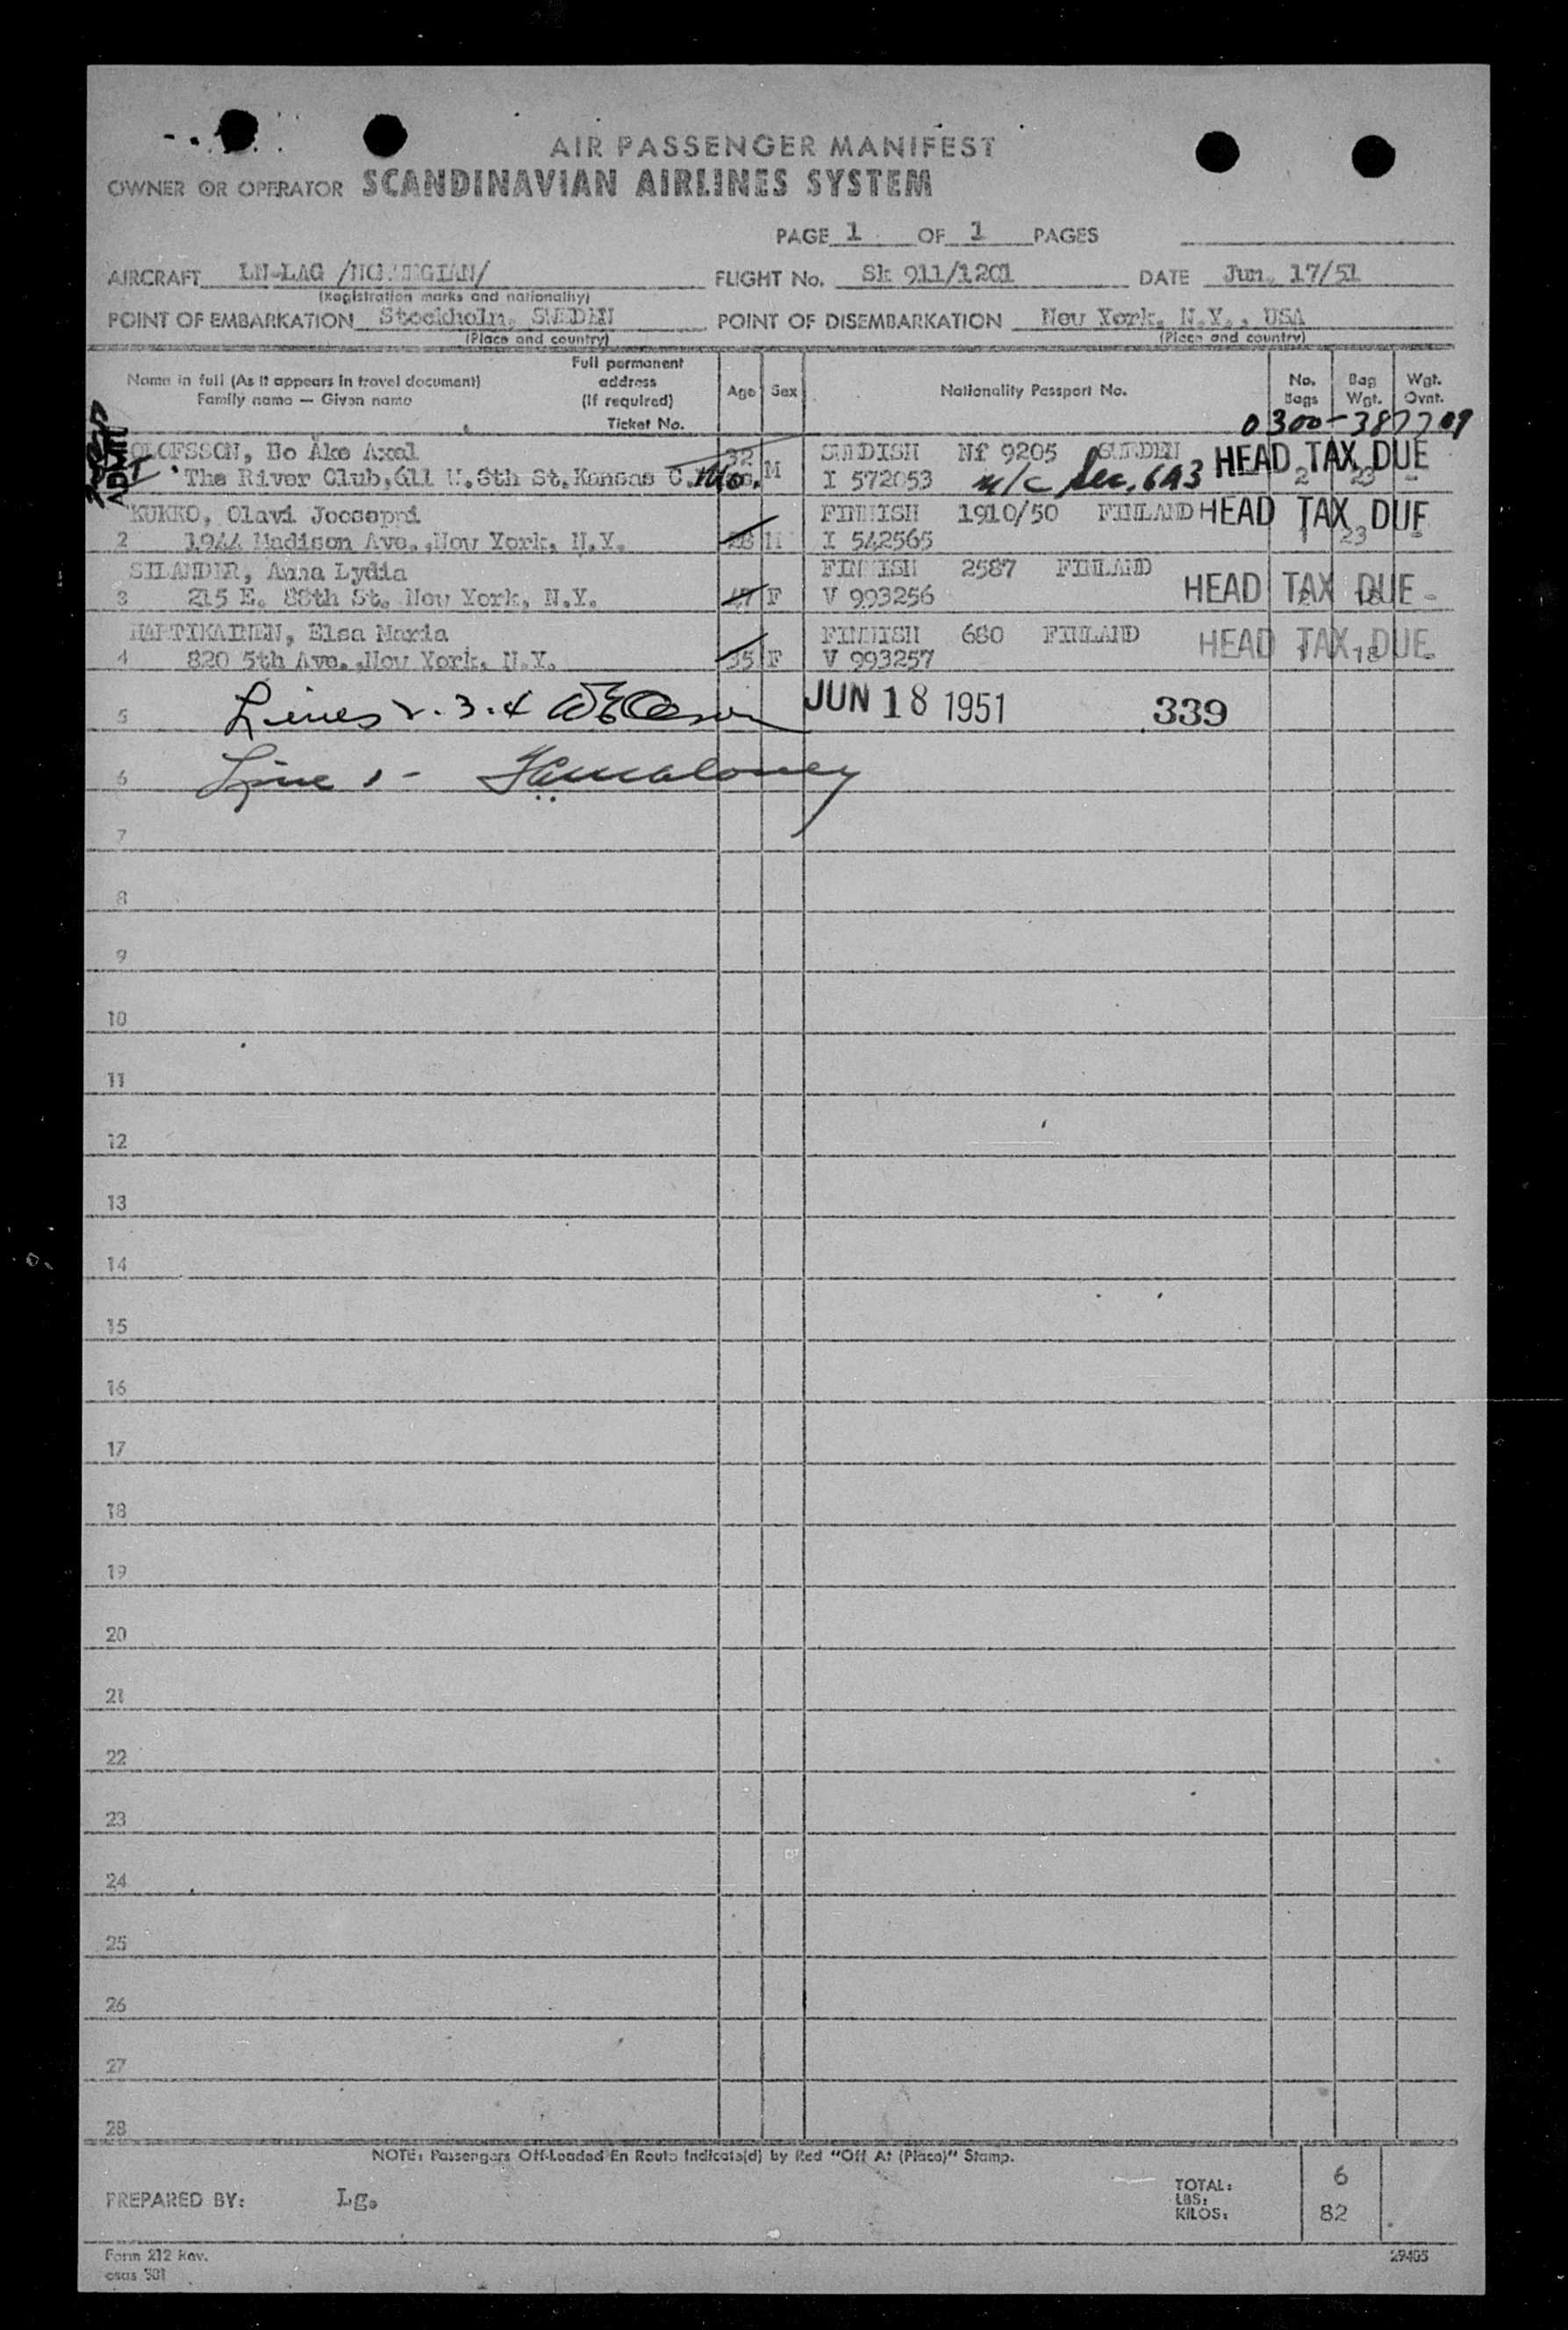 AIR PASSENGER MANIFEST
OWNER OR OPERATOR SCANDINAVIAN AIRLINES SYSTEM
PAGE 1 OF 1 PAGES
AIRCRAFT LN-LAG /NORWEGIAN/ FLIGHT No. SK 911/1201 DATE Jun. 17/51
(Registration marks and nationality)
POINT OF EMBARKATION Stockholm, SWEDEN POINT OF DISEMBARKATION New York, N.Y., USA
(Place and country) (Place and country)
Name in full (As it appears in travel document) Family name — Given name Full permanent address (If required) Ticket No. Age Sex Nationality Passport No. No. Bags Bag Wgt. Wgt. Ovnt.
0300-387709
ADMIT
OLOFSSON, Bo Åke Axel 32 SWEDISH Nf 9205 SWEDEN HEAD TAX DUE
The River Club, 611 W. 8th St. Kansas C. Mo. M I 572053 Sec. 6A3 2 23 -
KUKKO, Olavi Jooseppi FINNISH 1910/50 FINLAND HEAD TAX DUE
2 1944 Madison Ave., New York, N.Y. 28 M I 542565 1 23 -
SILANDER, Anna Lydia FINNISH 2587 FINLAND
3 215 E. 88th St. New York, N.Y. 47 F V 993256 HEAD TAX DUE -
MARTIKAINEN, Elsa Maria FINNISH 680 FINLAND HEAD TAX DUE
4 820 5th Ave., New York, N.Y. 35 F V 993257 1 18 -
5 Lines 2. 3. 4 JUN 18 1951 339
6 Line 1 - Maloney
7
8
9
10
11
12
13
14
15
16
17
18
19
20
21
22
23
24
25
26
27
28
NOTE: Passengers Off-Loaded En Route Indicate(d) by Red "Off At (Place)" Stamp.
PREPARED BY: Lg. TOTAL: 6
LBS:
KILOS: 82
Form 212 Rev. 29405
osas 301